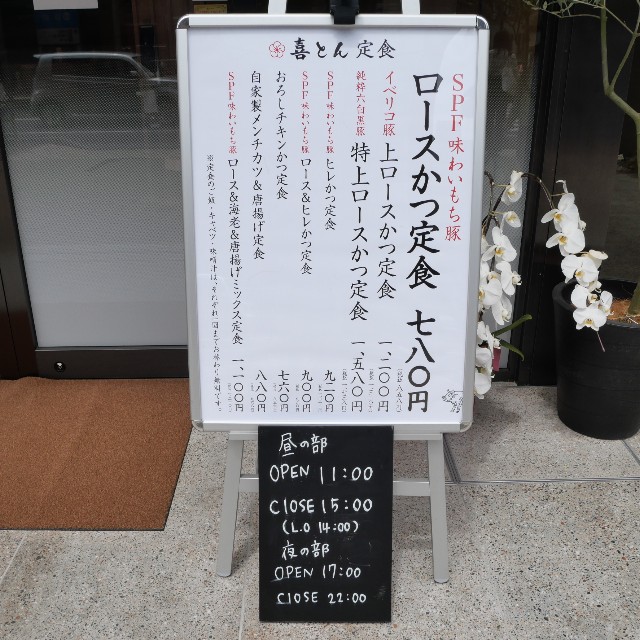 喜とん 定食
SPF 味わいもち豚
ロースかつ定食 七八〇円
イベリコ豚 上ロースかつ定食 一、二〇〇円
純粋六白黒豚 特上ロースかつ定食 一、五八〇円
SPF 味わいもち豚 ヒレかつ定食 九二〇円
SPF 味わいもち豚 ロース&ヒレかつ定食 九八〇円
おろしチキンかつ定食 七六〇円
自家製メンチカツ&唐揚げ定食 八八〇円
SPF 味わいもち豚 ロース&海老&唐揚げミックス定食 一、一〇〇円
※定食のご飯・キャベツ・味噌汁は、それぞれ一回までお味わり無料です。
昼の部
OPEN 11:00
CLOSE 15:00
(L.O 14:00)
夜の部
OPEN 17:00
CLOSE 22:00